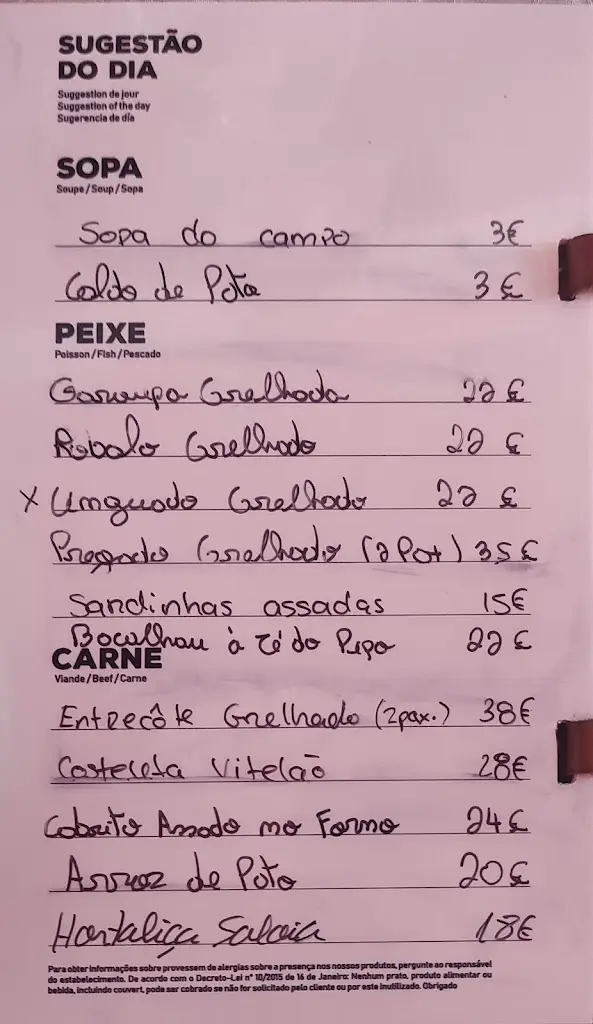 SUGESTÃO
DO DIA
Suggestion de jour
Suggestion of the day
Sugerencia de día
SOPA
Soupe / Soup / Sopa
Sopa do campo 3€
Caldo de Pota 3€
PEIXE
Poisson / Fish / Pescado
Garoupa Grelhada 22€
Robalo Grelhado 22€
x Linguado Grelhado 22€
Pregado Grelhado (2 Pax) 35€
Sardinhas assadas 15€
Bacalhau à Zé do Pipo 22€
CARNE
Viande / Beef / Carne
Entrecôte Grelhado (2pax.) 38€
Costeleta Vitelão 28€
Cabrito Assado no Forno 24€
Arroz de Pato 20€
Hortaliça Saloia 18€
Para obter informações sobre provessem de alergias sobre a presença nos nossos produtos, pergunte ao responsável
do estabelecimento. De acordo com o Decreto-Lei nº 10/2015 de 16 de Janeiro: Nenhum prato, produto alimentar ou
bebida, incluindo couvert, pode ser cobrado se não for solicitado pelo cliente ou por este inutilizado. Obrigado